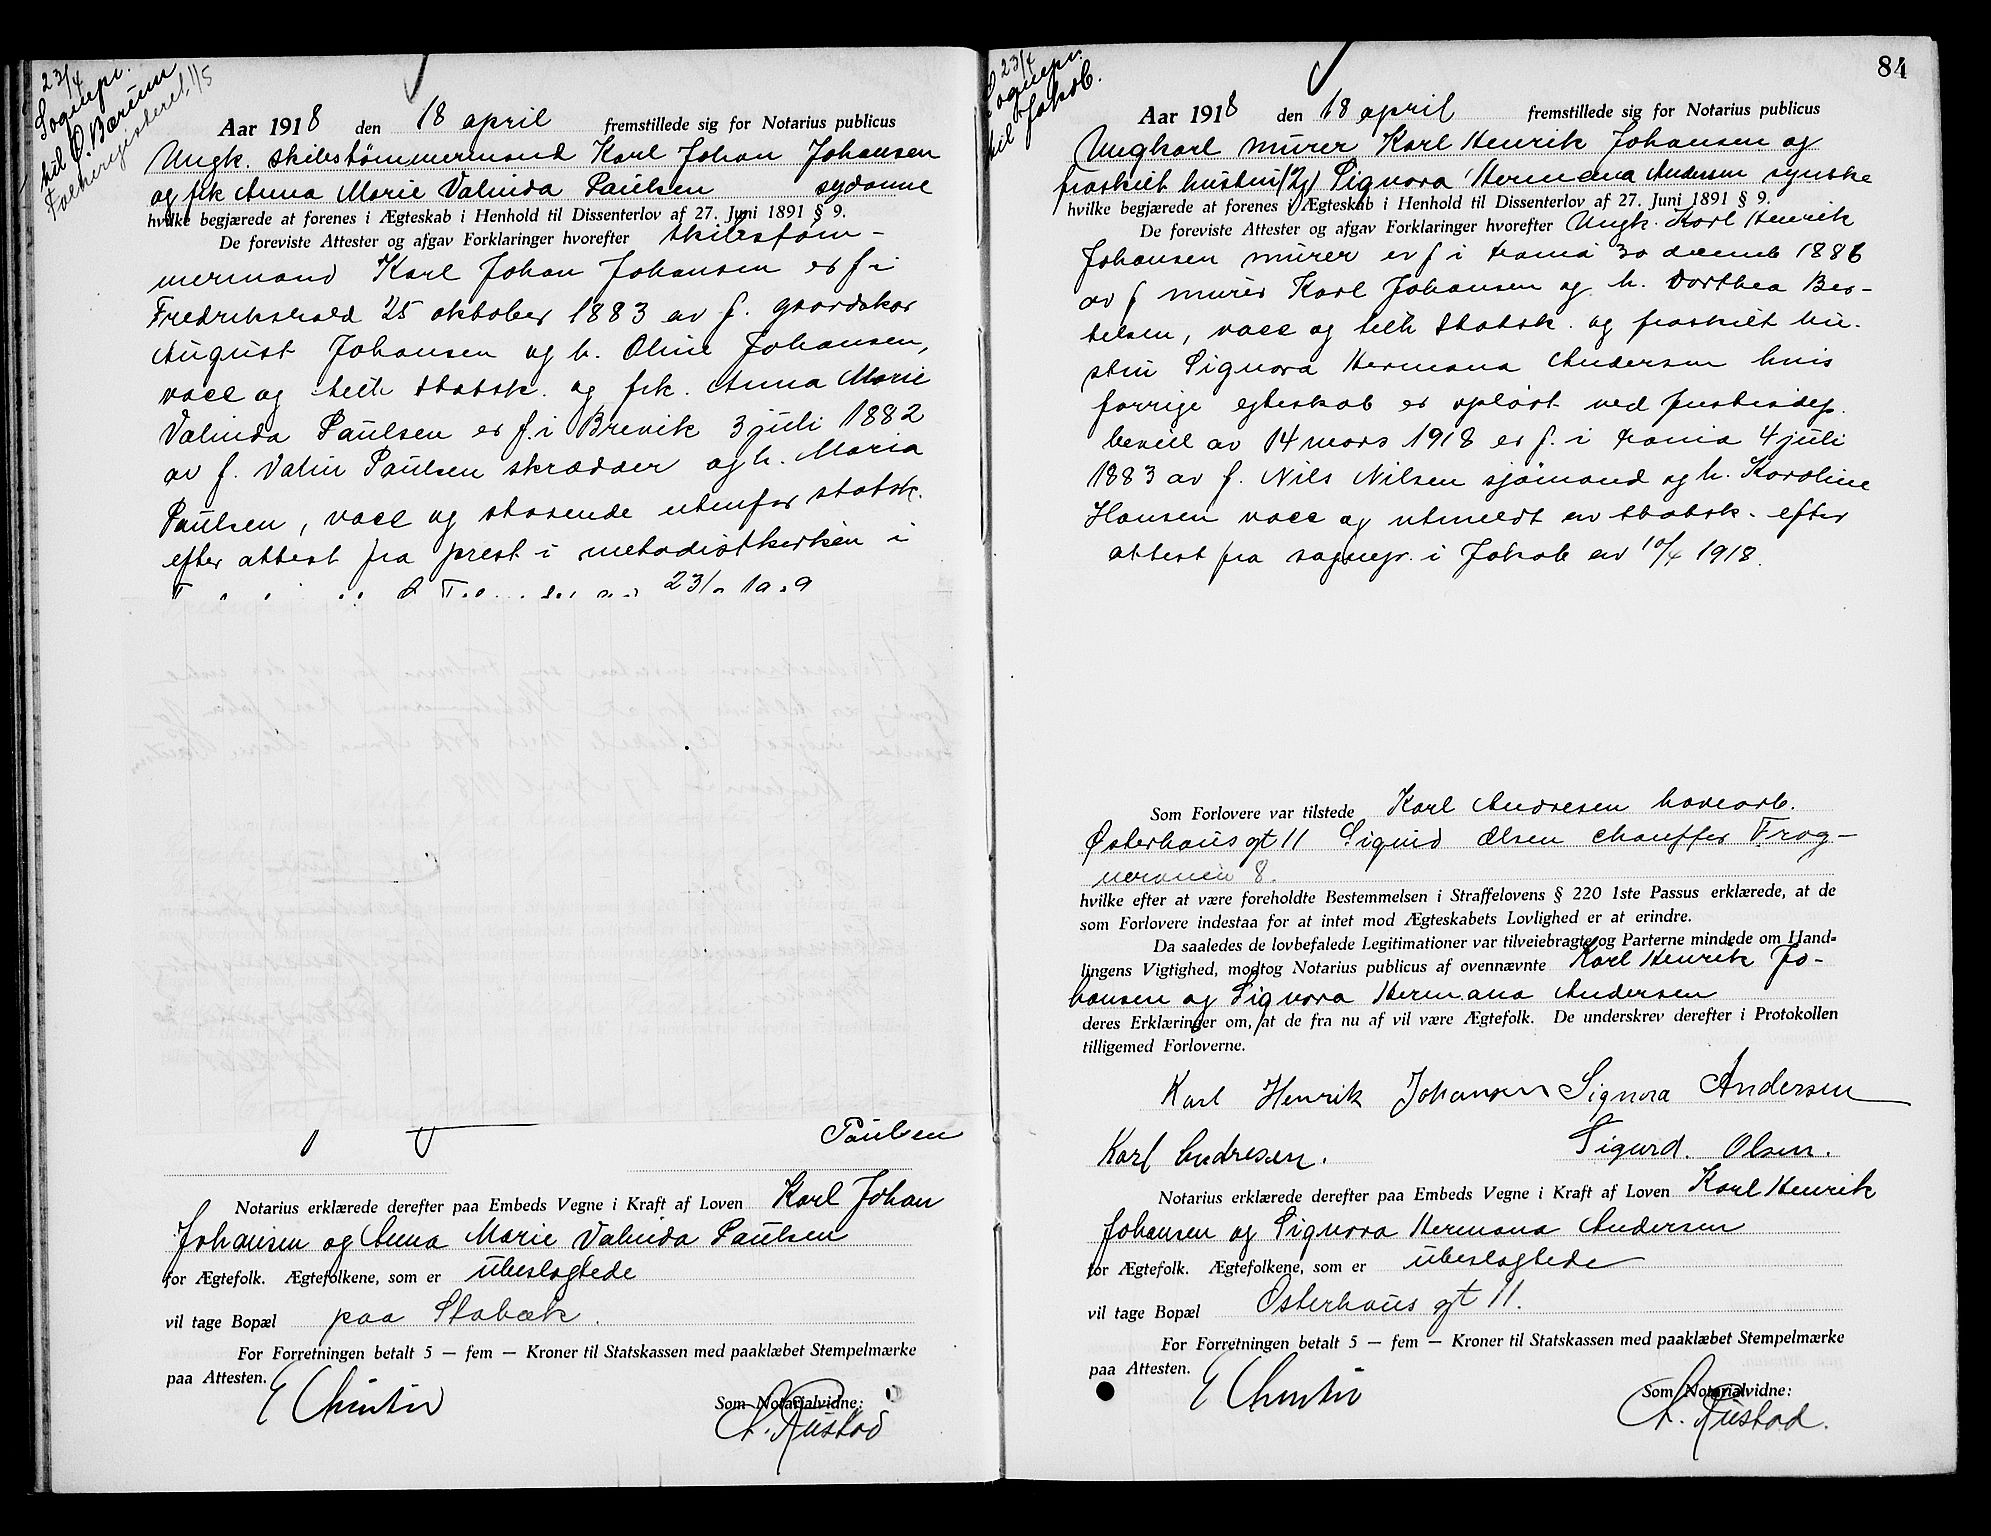 23/4
Sognepr.
til Ø. Bærum
Folkeregisteret 1/5
Aar 1918 den 18 april fremstillede sig for Notarius publicus
Ungk. skibstømmermand Karl Johan Johansen
og frk Anna Marie Valinda Paulsen
hvilke begjærede at forenes i Ægteskab i Henhold til Dissenterlov af 27. Juni 1891 § 9.
De foreviste Attester og afgav Forklaringer hvorefter skibstøm-
mermand Karl Johan Johansen er f i
Fredrikshald 25 oktober 1883 av f. gaardskar
August Johansen og h. Oline Johansen,
vacc og tilh statsk. og frk. Anna Marie
Valinda Paulsen er f. i Brevik 3 juli 1882
av f. Valin Paulsen skrædder og h. Maria
Paulsen, vacc og staaende utenfor statsk.
efter attest fra prest i metodistkirken i
Paulsen
Notarius erklærede derefter paa Embeds Vegne i Kraft af Loven Karl Johan
Johansen og Anna Marie Valinda Paulsen
for Ægtefolk. Ægtefolkene, som er ubeslegtede
vil tage Bopæl paa Stabæk.
For Forretningen betalt 5 — fem — Kroner til Statskassen med paaklæbet Stempelmærke
paa Attesten.
Som Notarialvidne:
A. Rustad
84
23/4
Sognepr.
til Jakob.
Aar 1918 den 18 april fremstillede sig for Notarius publicus
Ungkarl murer Karl Henrik Johansen og
fraskilt hustru (2g) Signora Hermana Andersen
hvilke begjærede at forenes i Ægteskab i Henhold til Dissenterlov af 27. Juni 1891 § 9.
De foreviste Attester og afgav Forklaringer hvorefter Ungk. Karl Henrik
Johansen murer er f i Krania 30 decemb 1886
av f murer Karl Johansen og h. Dorthea Ber-
telsen, vacc og tilh statsk. og fraskilt hu-
stru Signora Hermana Andersen hvis
forrige egteskab er opløst ved justisdep.
bevill av 14 mars 1918 er f. i Krania 4 juli
1883 av f. Nils Nilsen sjømand og h. Karoline
Hansen vacc og utmeldt av statsk. efter
attest fra sognepr. i Jakob av 10/4 1918.
Som Forlovere var tilstede Karl Andresen havearb.
Osterhausgt 11 Sigurd Olsen chauffør Frog-
nerveien 8.
hvilke efter at være foreholdte Bestemmelsen i Straffelovens § 220 1ste Passus erklærede, at de
som Forlovere indestaa for at intet mod Ægteskabets Lovlighed er at erindre.
Da saaledes de lovbefalede Legitimationer var tilveiebragte og Parterne mindede om Hand-
lingens Vigtighed, modtog Notarius publicus af ovennævnte Karl Henrik Jo-
hansen og Signora Hermana Andersen
deres Erklæringer om, at de fra nu af vil være Ægtefolk. De underskrev derefter i Protokollen
tilligemed Forloverne.
Karl Henrik Johansen Signora Andersen
Karl Andresen. Sigurd. Olsen.
Notarius erklærede derefter paa Embeds Vegne i Kraft af Loven Karl Henrik
Johansen og Signora Hermana Andersen
for Ægtefolk. Ægtefolkene, som er ubeslegtede
vil tage Bopæl Osterhausgt 11.
For Forretningen betalt 5 — fem — Kroner til Statskassen med paaklæbet Stempelmærke
paa Attesten.
Som Notarialvidne:
A. Rustad.